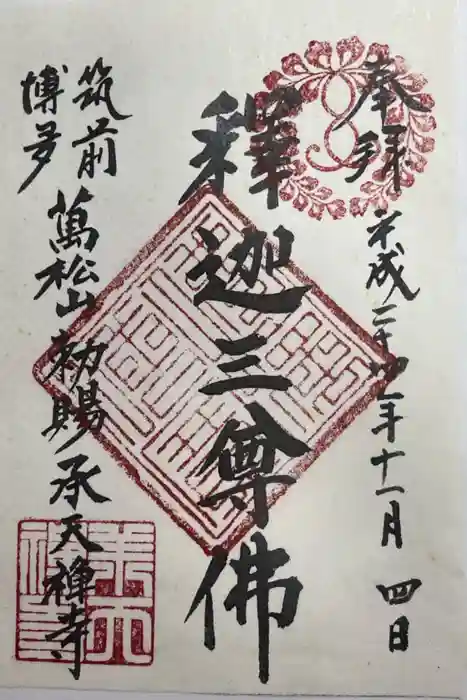 奉拜
平成二十四年十一月四日
釋迦三尊佛
筑前
博多
萬松山勅賜承天禅寺
承天禅寺